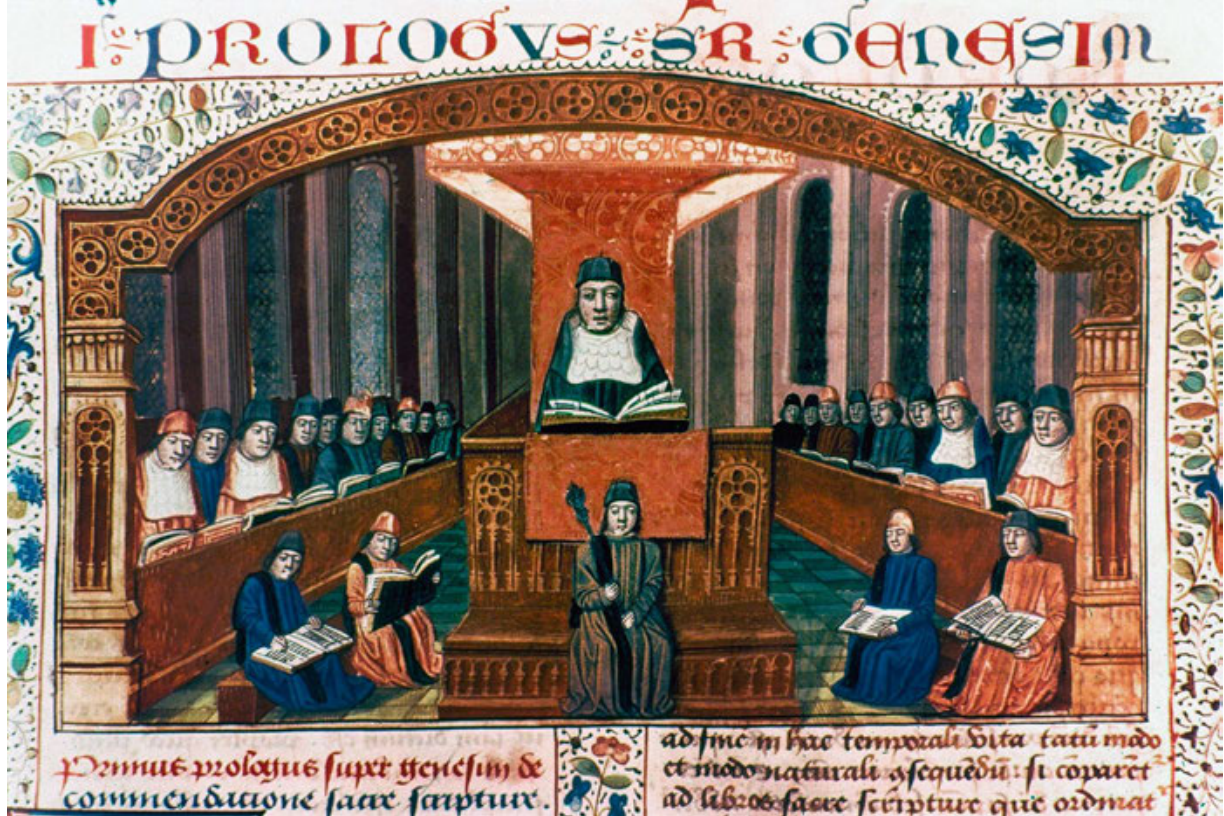 I PROLOGVS SR GENESIM
Primus prologus super genesim de
commendacione sacre scripture.
ad finē in hac temporali vita tātū modo
et modo naturali assequēdū: si cōparēt
ad libros sacre scripture que ordinat